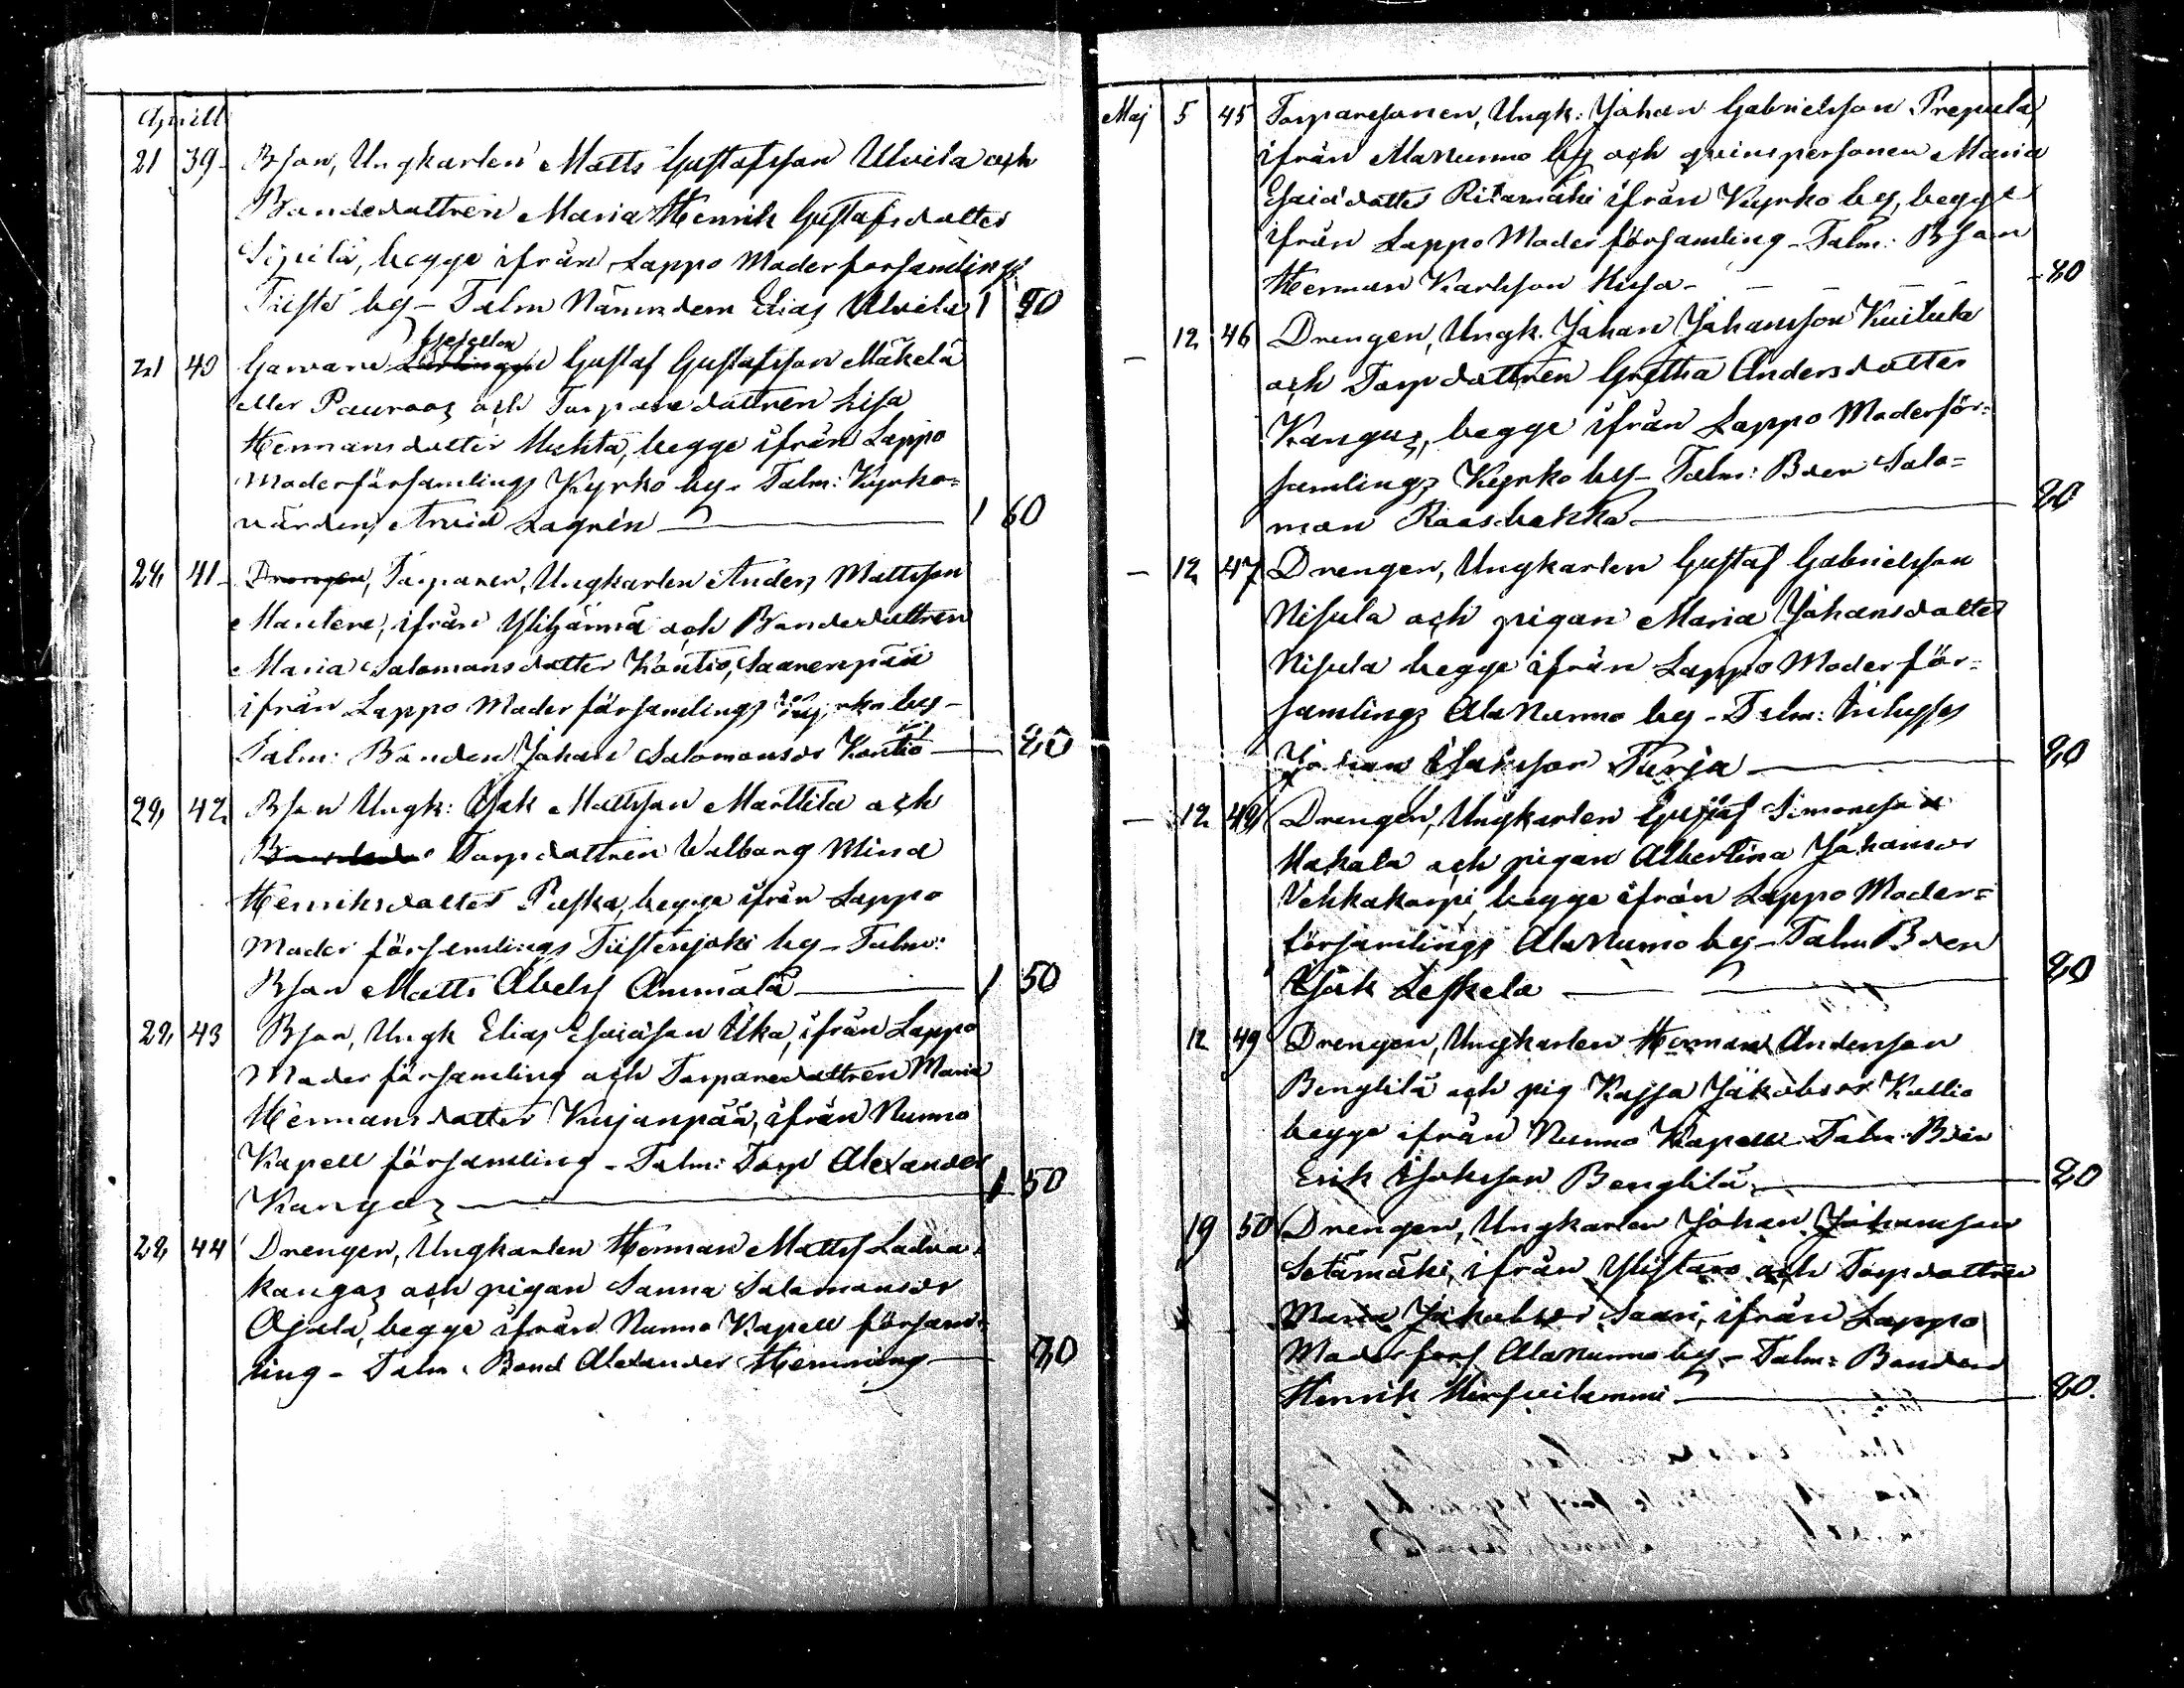 Aprill
21 39 Bson, Ungkarlen Matts Gustafsson Ulvila och
Bondedattren Maria Henrik Gustafsdatter
Sipilä, begge ifrån Lappo Moderforsamlings
by - Talm Nämndem Elias Ulvila 1 50
Gesellen
21 40 Garvare Gustaf Gustafsson Mäkelä
eller och Torparedattren Lisa
Hermansdatter Huhta, begge ifrån Lappo
Moderförsamlings Kyrko by - Talm: Kyrko=
värden Arvid Lagrén 1 60
29 41 Drengen, Torparen, Ungkarlen Anders Mattsson
Mantere, ifrån Ylihärmä och Bondedattren
Maria Salomonsdatter Kontio, Saarenpää
ifrån Lappo Moderförsamlings Kyrko by -
Talm: Bonden Johan Salomonsor Kontio 80
29 42 Bson Ungk: Isak Mattsson Marttila och
Torpdattren Walborg Mina
Henriksdatter Puska, begge ifrån Lappo
Moder församlings Tiistenjoki by - Talm:
Bson Matts Abelss Ammälä 1 50
29 43 Bson, Ungk Elias Esaiason Uka, ifrån Lappo
Moder församling och Torparedattren Maria
Hermansdatter Kujanpää, ifrån Nurmo
Kapell församling - Talm: Torp Alexander
Kangas 1 50
29 44 Drengen, Ungkarlen Herman Mattss Ladva=
kangas och pigan Sanna Salomonsdr
Ojala, begge ifrån Nurmo Kapell försam=
ling - Talm: Bond Alexander Hemming 80
Maj 5 45 Torparesonen, Ungk: Johan Gabrielsson Prepula,
ifrån Alanurmo by och qvinspersonen Maria
Esaiædatter Ritamäki ifrån Kyrko by, begge
ifrån Lappo Moder församling - Talm: Bson
Herman Karlsson Hissa - - - - - 80
- 12 46 Drengen, Ungk. Johan Johansson Kuitula
och Torpdattren Gretha Andersdatter
Kangas, begge ifrån Lappo Moderför=
samlings Kyrko by - Talm: Bden Salo=
mon Raasbakka 80
- 12 47 Drengen, Ungkarlen Gustaf Gabrielsson
Nisula och pigan Maria Johansdatter
Nisula begge ifrån Lappo Moder för=
samlings Alanurmo by - Talm: Inhysses
Johan Isaksson Turja 80
- 12 48 Drengen, Ungkarlen Gustaf Simonsson
Hakala och pigan Albertina Johansdr
Vehkakorpi, begge ifrån Lappo Moder=
församlings Alanurmo by - Talm Bden
Isak Leskelä 80
12 49 Drengen, Ungkarlen Herman Andersson
Benglilä och pig Kajsa Jakobsdr Kallio
begge ifrån Nurmo Kapell - Talm: Bden
Erik Isaksson Benglilä 80
19 50 Drengen, Ungkarlen Johan Johansson
Setämäki, ifrån Ylistaro och Torpdattren
Maria Jakobsdr Saari, ifrån Lappo
Moder förs Alanurmo by - Talm: Bonden
Henrik 80.